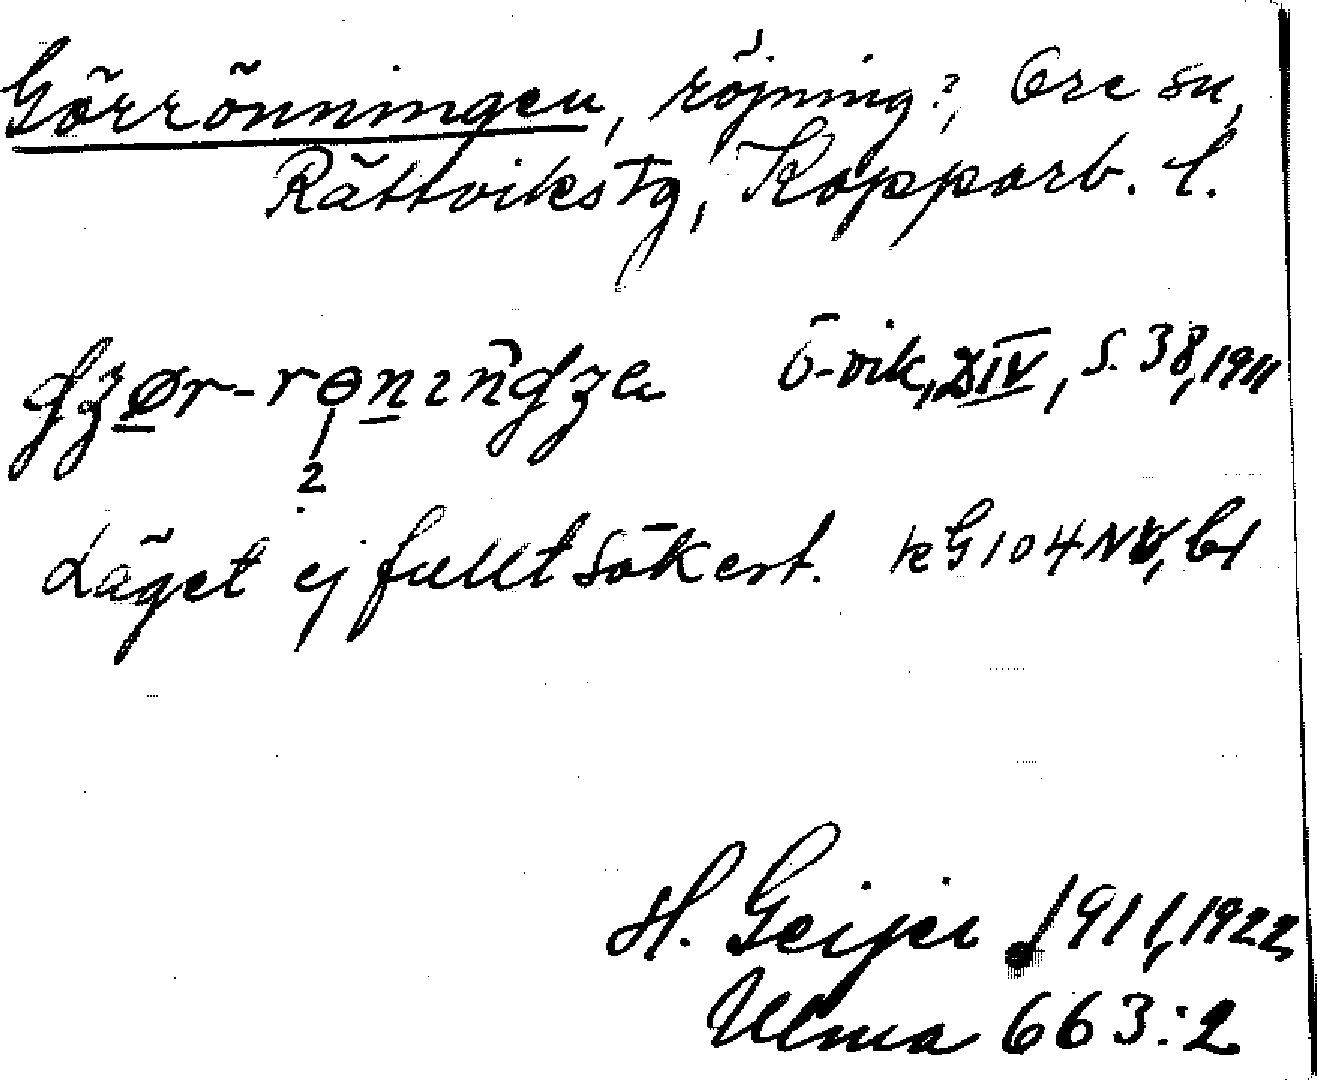 Görrönningen, röjning?, Ore sn,
Rättviks tg, Kopparb. l.
Ö-vik, XIV, S. 38, 1911
2
Läget ej fullt säkert. kG 104 NV, b1
H. Geijer 1911, 1922
Ulma 663:2